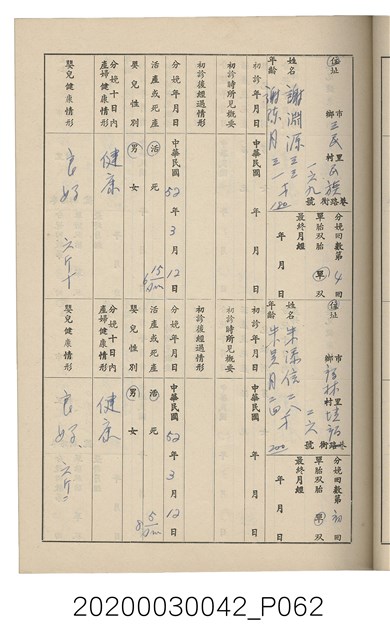 住址 鄉市 三民 村里 民族 路街巷 一六九號 分娩回數第 4 回
姓名 謝淵源 三三 單胎双胎 單 双
年齡 謝陳月 三一 才 最終月經 年 月 日
180
初診年月日 年 月 日
初診時所見概要
初診後經過情形
分娩年月日 中華民國 52 年 3 月 12 日
活產或死產 活 死
嬰兒性別 男 女
分娩十日內產婦健康情形 健康
嬰兒健康情形 良好 六斤十
住址 鄉市 村里 路街巷 二六號 分娩回數第 初 回
姓名 朱添信 二八 才 單胎双胎 單 双
年齡 朱吳月 二四 最終月經 年 月 日
200
初診年月日 年 月 日
初診時所見概要
初診後經過情形
分娩年月日 中華民國 52 年 3 月 12 日
活產或死產 活 死
嬰兒性別 男 女
分娩十日內產婦健康情形 健康
嬰兒健康情形 良好 六斤二
20200030042_P062